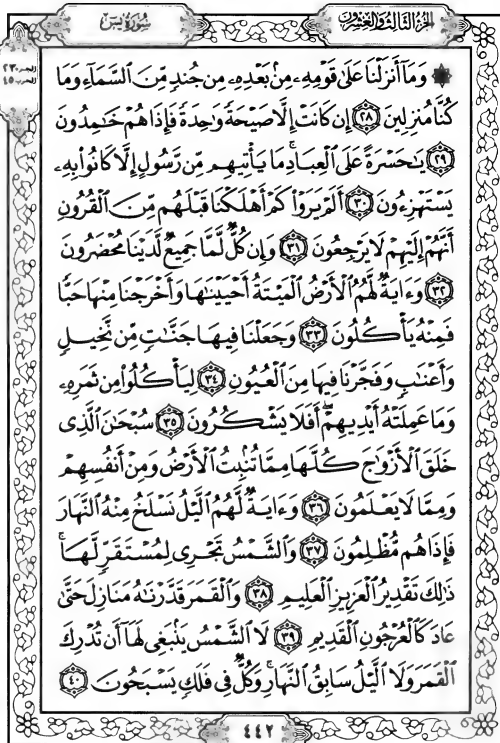 الجزء الثالث والعشرون
سورة يس
الجزء ٢٣
الحزب ٤٥
۞ وَمَا أَنزَلْنَا عَلَىٰ قَوْمِهِۦ مِنۢ بَعْدِهِۦ مِن جُندٍ مِّنَ السَّمَآءِ وَمَا
كُنَّا مُنزِلِينَ ٢٨ إِن كَانَتْ إِلَّا صَيْحَةً وَٰحِدَةً فَإِذَا هُمْ خَٰمِدُونَ
٢٩ يَٰحَسْرَةً عَلَى الْعِبَادِ مَا يَأْتِيهِم مِّن رَّسُولٍ إِلَّا كَانُوا۟ بِهِۦ
يَسْتَهْزِءُونَ ٣٠ أَلَمْ يَرَوْا۟ كَمْ أَهْلَكْنَا قَبْلَهُم مِّنَ الْقُرُونِ
أَنَّهُمْ إِلَيْهِمْ لَا يَرْجِعُونَ ٣١ وَإِن كُلٌّ لَّمَّا جَمِيعٌ لَّدَيْنَا مُحْضَرُونَ
٣٢ وَءَايَةٌ لَّهُمُ الْأَرْضُ الْمَيْتَةُ أَحْيَيْنَٰهَا وَأَخْرَجْنَا مِنْهَا حَبًّا
فَمِنْهُ يَأْكُلُونَ ٣٣ وَجَعَلْنَا فِيهَا جَنَّٰتٍ مِّن نَّخِيلٍ
وَأَعْنَٰبٍ وَفَجَّرْنَا فِيهَا مِنَ الْعُيُونِ ٣٤ لِيَأْكُلُوا۟ مِن ثَمَرِهِۦ
وَمَا عَمِلَتْهُ أَيْدِيهِمْ ۖ أَفَلَا يَشْكُرُونَ ٣٥ سُبْحَٰنَ الَّذِى
خَلَقَ الْأَزْوَٰجَ كُلَّهَا مِمَّا تُنۢبِتُ الْأَرْضُ وَمِنْ أَنفُسِهِمْ
وَمِمَّا لَا يَعْلَمُونَ ٣٦ وَءَايَةٌ لَّهُمُ الَّيْلُ نَسْلَخُ مِنْهُ النَّهَارَ
فَإِذَا هُم مُّظْلِمُونَ ٣٧ وَالشَّمْسُ تَجْرِى لِمُسْتَقَرٍّ لَّهَا ۚ
ذَٰلِكَ تَقْدِيرُ الْعَزِيزِ الْعَلِيمِ ٣٨ وَالْقَمَرَ قَدَّرْنَٰهُ مَنَازِلَ حَتَّىٰ
عَادَ كَالْعُرْجُونِ الْقَدِيمِ ٣٩ لَا الشَّمْسُ يَنۢبَغِى لَهَآ أَن تُدْرِكَ
الْقَمَرَ وَلَا الَّيْلُ سَابِقُ النَّهَارِ ۚ وَكُلٌّ فِى فَلَكٍ يَسْبَحُونَ ٤٠
٤٤٢